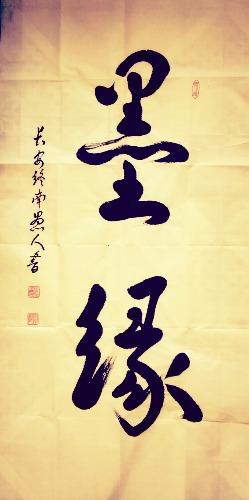 墨缘
长安终南愚人书